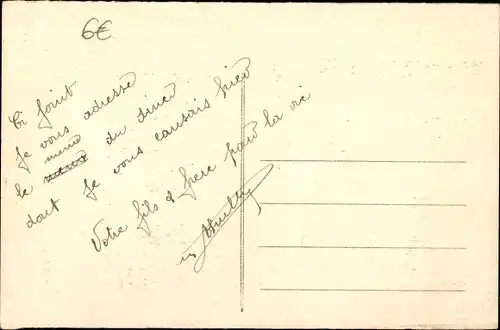 6€
Ci joint
Je vous adresse
le menu du diner
dont je vous causais hier
Votre fils & frère pour la vie